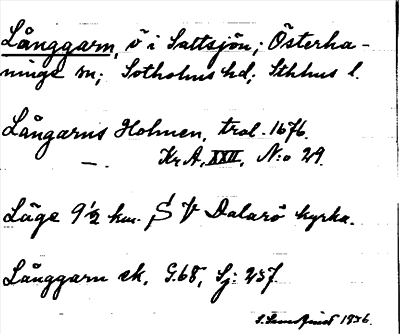 Långgarn, ö i Saltsjön; Österha-
ninge sn; Sotholms hd; Sthlms l.
Långarns Holmen, trol. 1676.
—„— Kr A, XXII, N:o 29.
Läge 9 1/2 km. S V Dalarö kyrka.
Långgarn ek. G.68, Sj: 257.
1936.